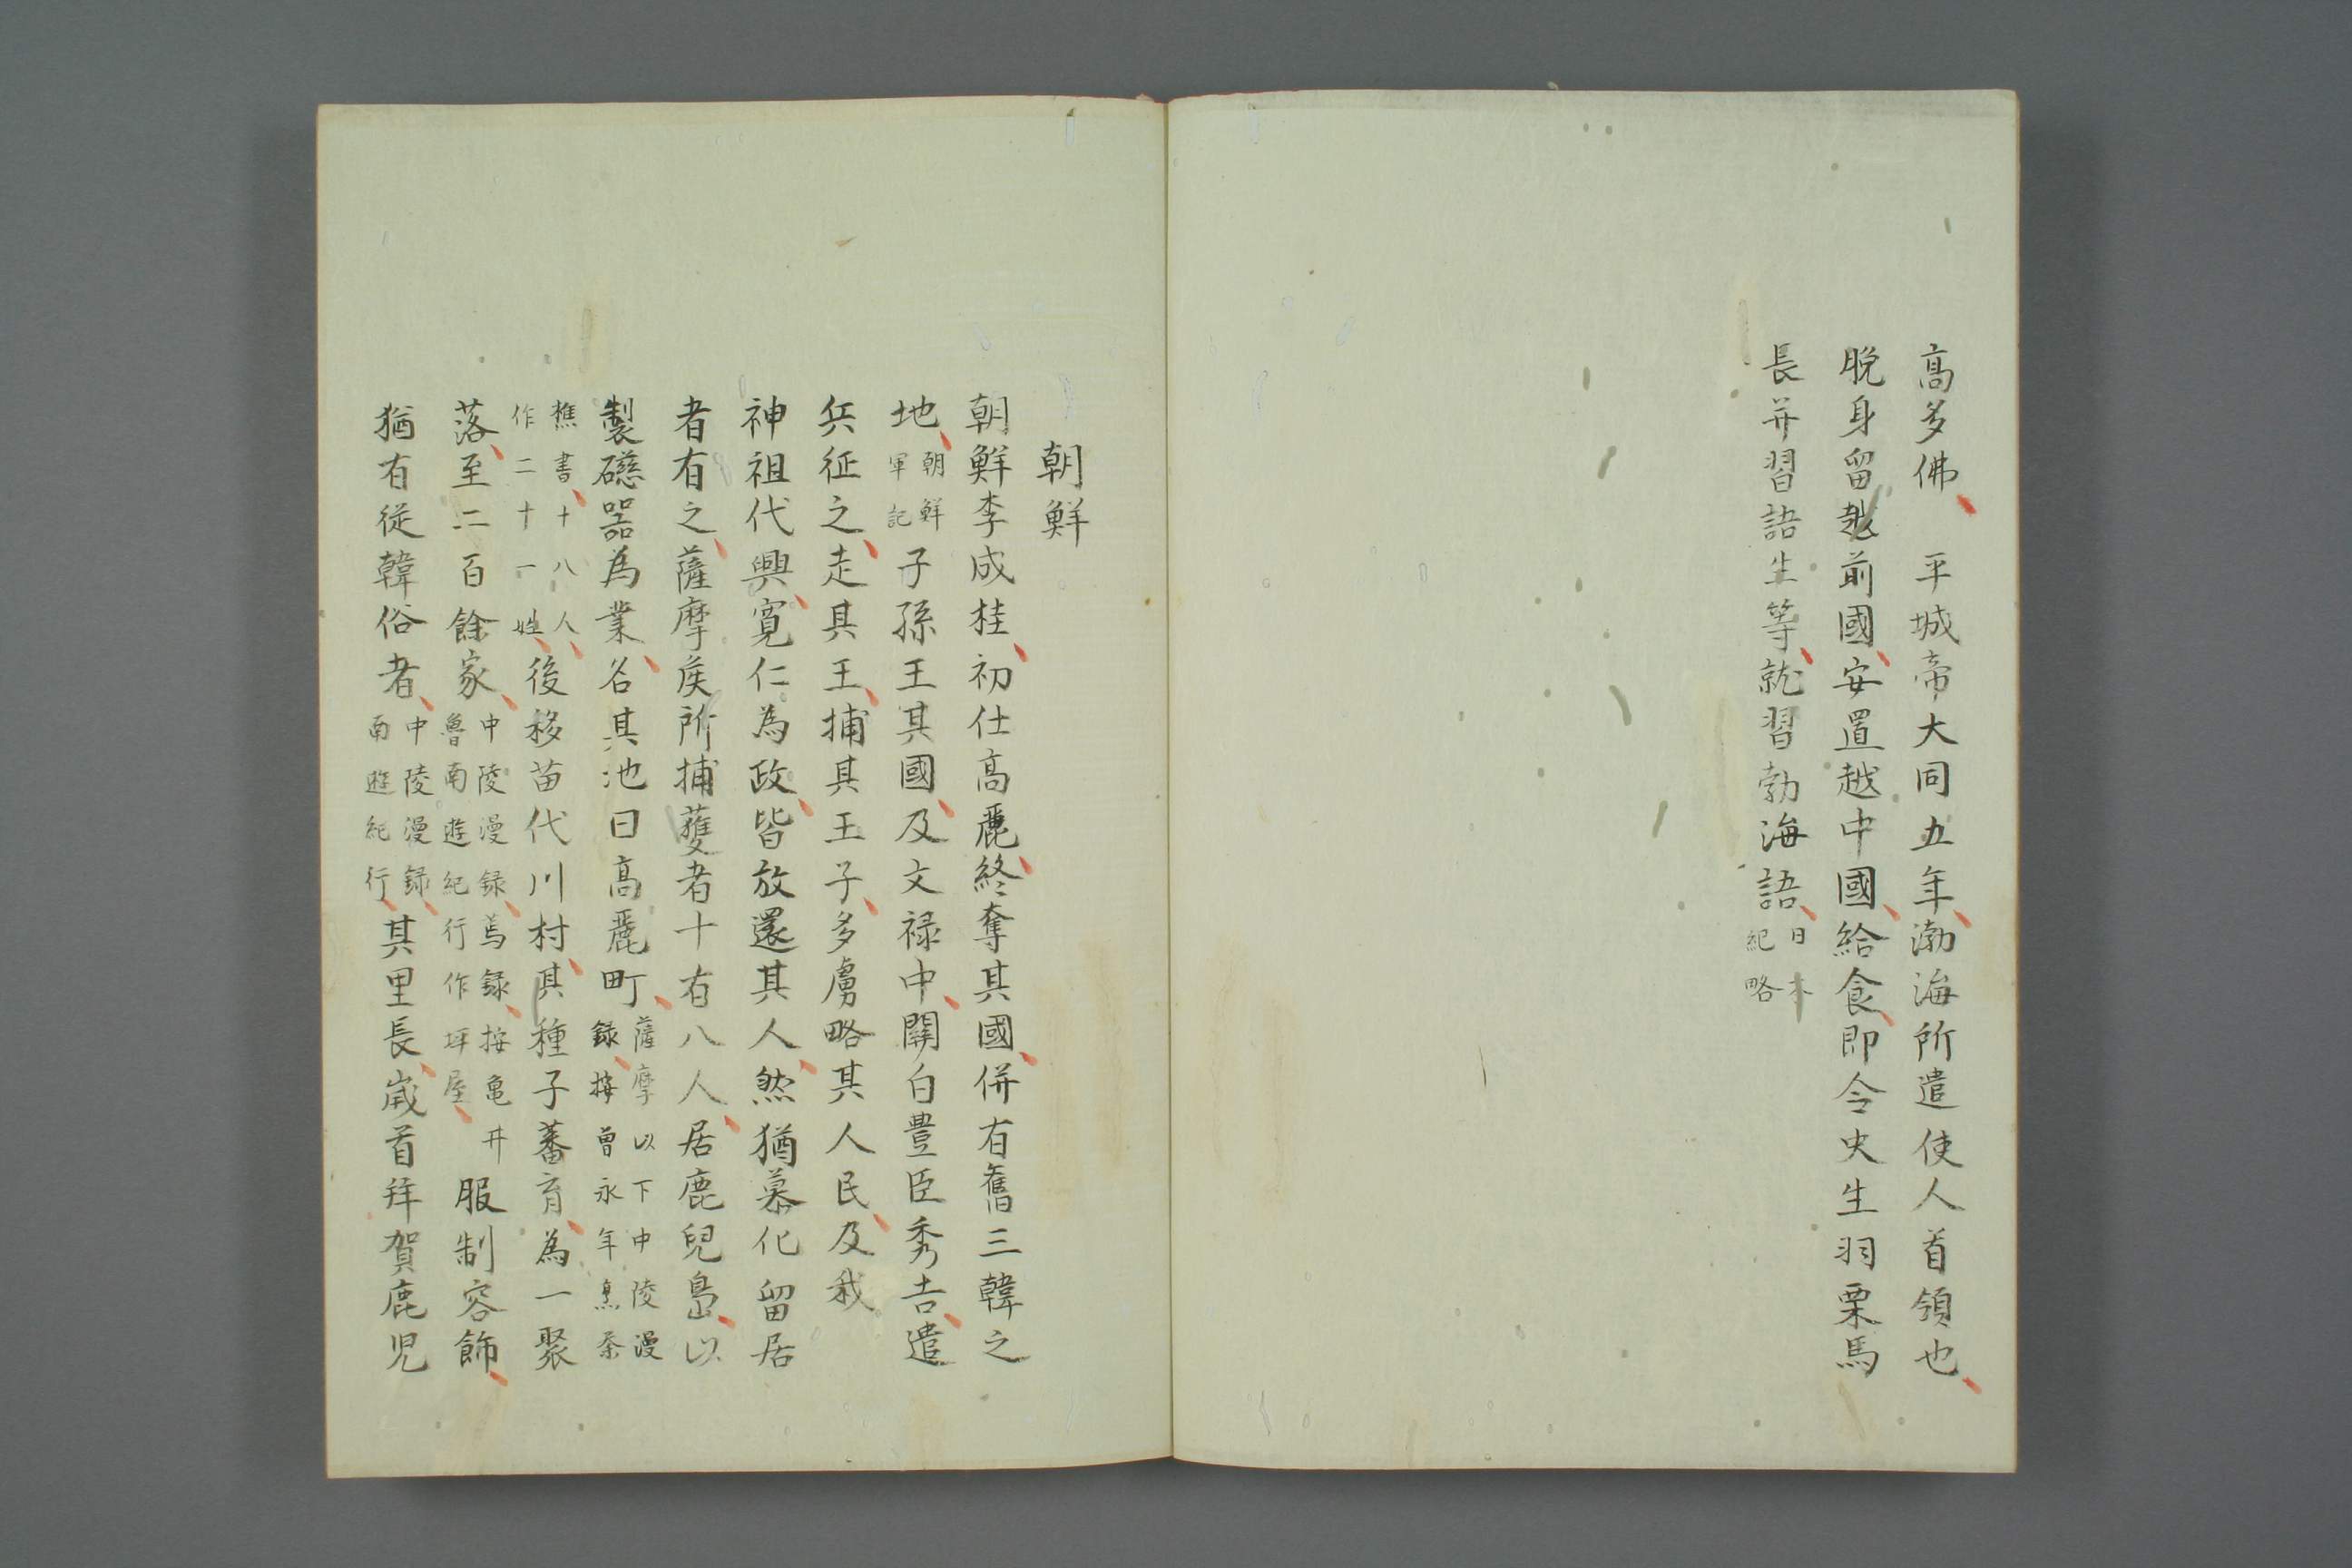 高多佛　平城帝大同五年渤海所遣使人首領也
脫身留越前國安置越中國給食即令史生羽栗馬
長并習語生等就習渤海語日本
紀略
朝鮮
朝鮮李成桂初仕高麗終奪其國併有舊三韓之
地朝鮮
軍記子孫王其國及文禄中関白豊臣秀吉遣
兵征之走其王捕其王子多虜略其人民及我
神祖代興寛仁為政皆放還其人然猶慕化留居
者有之薩摩侯所捕獲者十有八人居鹿兒島以
製磁器為業名其池曰高麗町薩摩以下中陵漫
録按曽永年黒茶
樵書十八人
作二十一姓後移苗代川村其種子蕃育為一聚
落至二百餘家中陵漫録蔫録按亀井
魯南遊紀行作坪屋服制容飾
猶有從韓俗者中陵漫録
南遊紀行其里長歳首拜賀鹿児